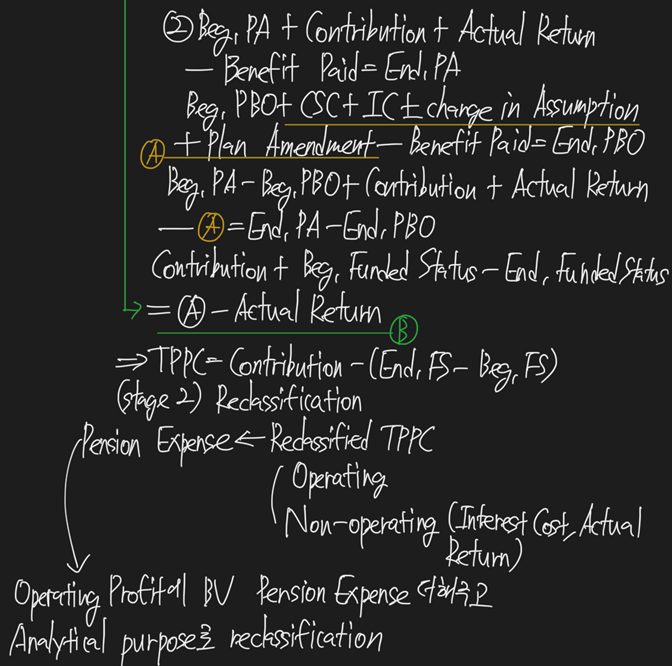 ② Beg, PA + Contribution + Actual Return
— Benefit Paid = End, PA
Beg, PBO + CSC + IC ± change in Assumption
Ⓐ + Plan Amendment — Benefit Paid = End, PBO
Beg, PA - Beg, PBO + Contribution + Actual Return
— Ⓐ = End, PA - End, PBO
Contribution + Beg, Funded Status - End, Funded Status
= Ⓐ - Actual Return
Ⓑ
⇒ TPPC = Contribution - (End, FS - Beg, FS)
(stage 2) Reclassification
Pension Expense ← Reclassified TPPC
Operating
Non-operating (Interest Cost, Actual
Return)
Operating Profit에 BV Pension Expense 더해주고
Analytical purpose로 reclassification